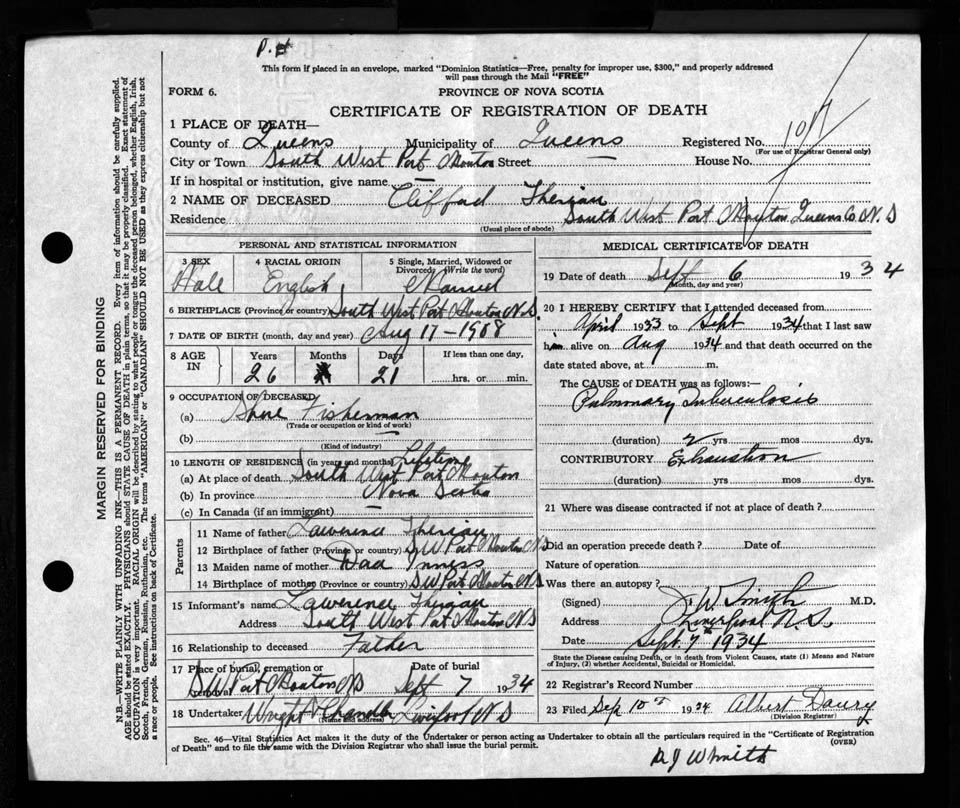 This form if placed in an envelope, marked "Dominion Statistics—Free, penalty for improper use, $300," and properly addressed
will pass through the Mail "FREE"
FORM 6.
PROVINCE OF NOVA SCOTIA
CERTIFICATE OF REGISTRATION OF DEATH
1 PLACE OF DEATH—
County of Queens Municipality of Queens Registered No. 1017
(For use of Registrar General only)
City or Town South West Port Mouton Street — House No.
If in hospital or institution, give name —
2 NAME OF DECEASED Clifford Therian
Residence South West Port Mouton Queens Co. N.S
(Usual place of abode)
PERSONAL AND STATISTICAL INFORMATION
3 SEX 4 RACIAL ORIGIN 5 Single, Married, Widowed or
Divorced (Write the word)
Male English Married
6 BIRTHPLACE (Province or country) South West Port Mouton N.S.
7 DATE OF BIRTH (month, day and year) Aug 17 - 1908
8 AGE IN Years Months Days If less than one day,
26 21 hrs. or min.
9 OCCUPATION OF DECEASED
(a) Shore Fisherman
(Trade or occupation or kind of work)
(b)
(Kind of industry)
10 LENGTH OF RESIDENCE (in years and months) Lifetime
(a) At place of death South West Port Mouton
(b) In province Nova Scotia
(c) In Canada (if an immigrant) —
Parents
11 Name of father Lawerence Therian
12 Birthplace of father (Province or country) S W Port Mouton NS
13 Maiden name of mother Inness
14 Birthplace of mother (Province or country) S W Port Mouton N.S
15 Informant's name Lawerence Therian
Address South West Port Mouton N.S
16 Relationship to deceased Father
17 Place of burial, cremation or removal Date of burial
S W Port Mouton N S Sept 7 1934
18 Undertaker Wright & Liverpool N S
(Name and address)
MEDICAL CERTIFICATE OF DEATH
19 Date of death Sept 6 1934
(Month, day and year)
20 I HEREBY CERTIFY that I attended deceased from
April 1933 to Sept 1934 that I last saw
him alive on Aug 1934 and that death occurred on the
date stated above, at m.
The CAUSE OF DEATH was as follows:
Pulmonary Tuberculosis
(duration) 2 yrs mos dys.
CONTRIBUTORY Exhaustion
(duration) yrs mos dys.
21 Where was disease contracted if not at place of death?
Did an operation precede death? Date of
Nature of operation
Was there an autopsy?
(Signed) J W Smith M.D.
Address Liverpool N.S.
Date Sept. 7th 1934
State the Disease causing Death, or in death from Violent Causes, state (1) Means and Nature
of Injury, (2) whether Accidental, Suicidal or Homicidal.
22 Registrar's Record Number
23 Filed Sep 10th 1934 Albert Daury
(Division Registrar)
Sec. 46—Vital Statistics Act makes it the duty of the Undertaker or person acting as Undertaker to obtain all the particulars required in the "Certificate of Registration
of Death" and to file the same with the Division Registrar who shall issue the burial permit.
(OVER)
MARGIN RESERVED FOR BINDING
N.B.—WRITE PLAINLY WITH UNFADING INK—THIS IS A PERMANENT RECORD. Every item of information should be carefully supplied.
AGE should be stated EXACTLY. PHYSICIANS should STATE CAUSE OF DEATH in plain terms, so that it may be properly classified. Exact statement of
OCCUPATION is very important. RACIAL ORIGIN will be described by stating to what people or tongue the deceased person belonged, whether English, Irish,
Scotch, French, German, Russian, Ruthenian, etc. The terms "AMERICAN" or "CANADIAN" SHOULD NOT BE USED as they express citizenship but not
a race or people. See instructions on back of Certificate.